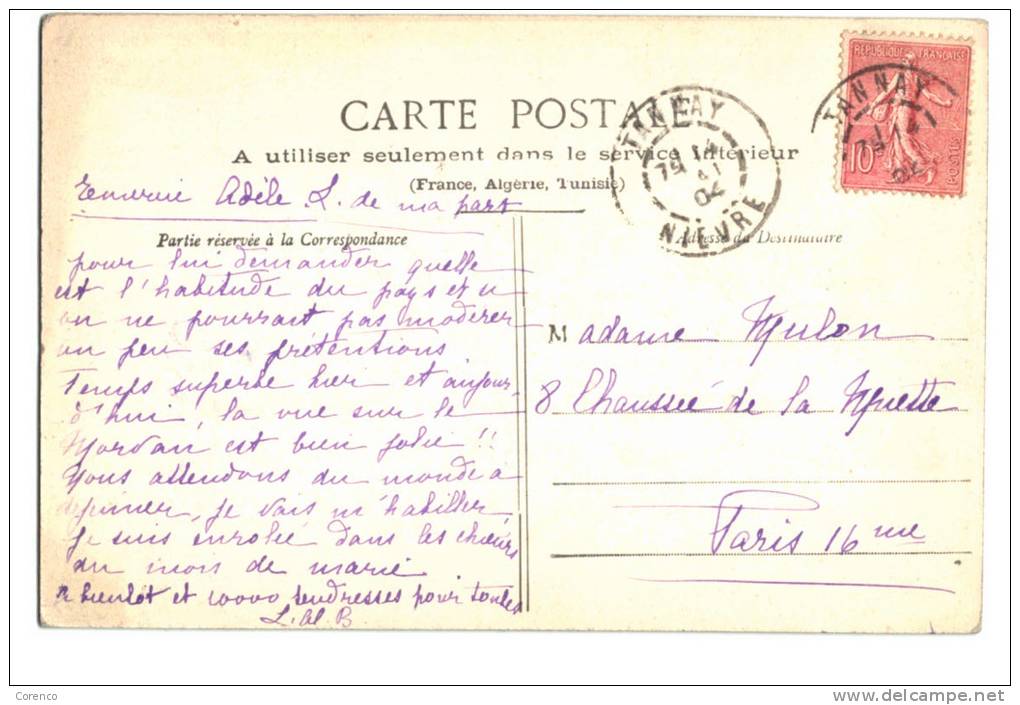 CARTE POSTALE
A utiliser seulement dans le service intérieur
(France, Algérie, Tunisie)
REPUBLIQUE FRANÇAISE
POSTES
10
TANNAY
TANNAY
NIEVRE
04
Adèle L. de ma part
Partie réservée à la Correspondance
pour lui demander quelle
est l'habitude du pays et
on ne pourrait pas modérer
un peu ses prétentions.
Temps superbe hier et aujour-
d'hui, la vue sur le
Morvan est bien jolie !!
Nous attendons du monde a
dejeuner, je vais m'habiller,
Je suis enrolée dans les chœurs
du mois de marie
a bientot et 10000 tendresses pour toutes
Adresse du Destinataire
Madame Mulon
8 Chaussée de la Muette
Paris 16me
Corenco
delcampe.net